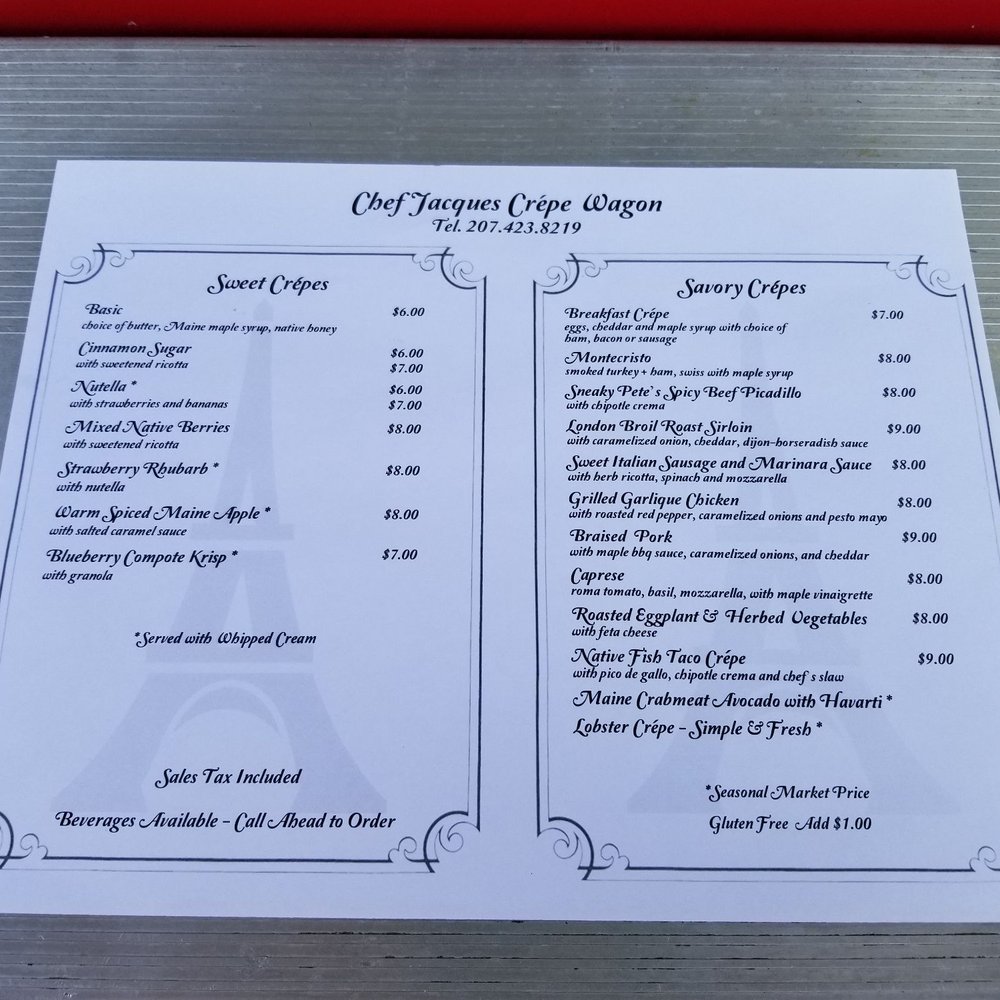 Chef Jacques Crépe Wagon
Tel. 207.423.8219
Sweet Crépes
Basic $6.00
choice of butter, Maine maple syrup, native honey
Cinnamon Sugar $6.00
with sweetened ricotta $7.00
Nutella * $6.00
with strawberries and bananas $7.00
Mixed Native Berries $8.00
with sweetened ricotta
Strawberry Rhubarb * $8.00
with nutella
Warm Spiced Maine Apple * $8.00
with salted caramel sauce
Blueberry Compote Krisp * $7.00
with granola
*Served with Whipped Cream
Sales Tax Included
Beverages Available - Call Ahead to Order
Savory Crépes
Breakfast Crépe $7.00
eggs, cheddar and maple syrup with choice of
ham, bacon or sausage
Montecristo $8.00
smoked turkey + ham, swiss with maple syrup
Sneaky Pete`s Spicy Beef Picadillo $8.00
with chipotle crema
London Broil Roast Sirloin $9.00
with caramelized onion, cheddar, dijon-horseradish sauce
Sweet Italian Sausage and Marinara Sauce $8.00
with herb ricotta, spinach and mozzarella
Grilled Garlique Chicken $8.00
with roasted red pepper, caramelized onions and pesto mayo
Braised Pork $9.00
with maple bbq sauce, caramelized onions, and cheddar
Caprese $8.00
roma tomato, basil, mozzarella, with maple vinaigrette
Roasted Eggplant & Herbed Vegetables $8.00
with feta cheese
Native Fish Taco Crépe $9.00
with pico de gallo, chipotle crema and chef`s slaw
Maine Crabmeat Avocado with Havarti *
Lobster Crépe - Simple & Fresh *
*Seasonal Market Price
Gluten Free Add $1.00